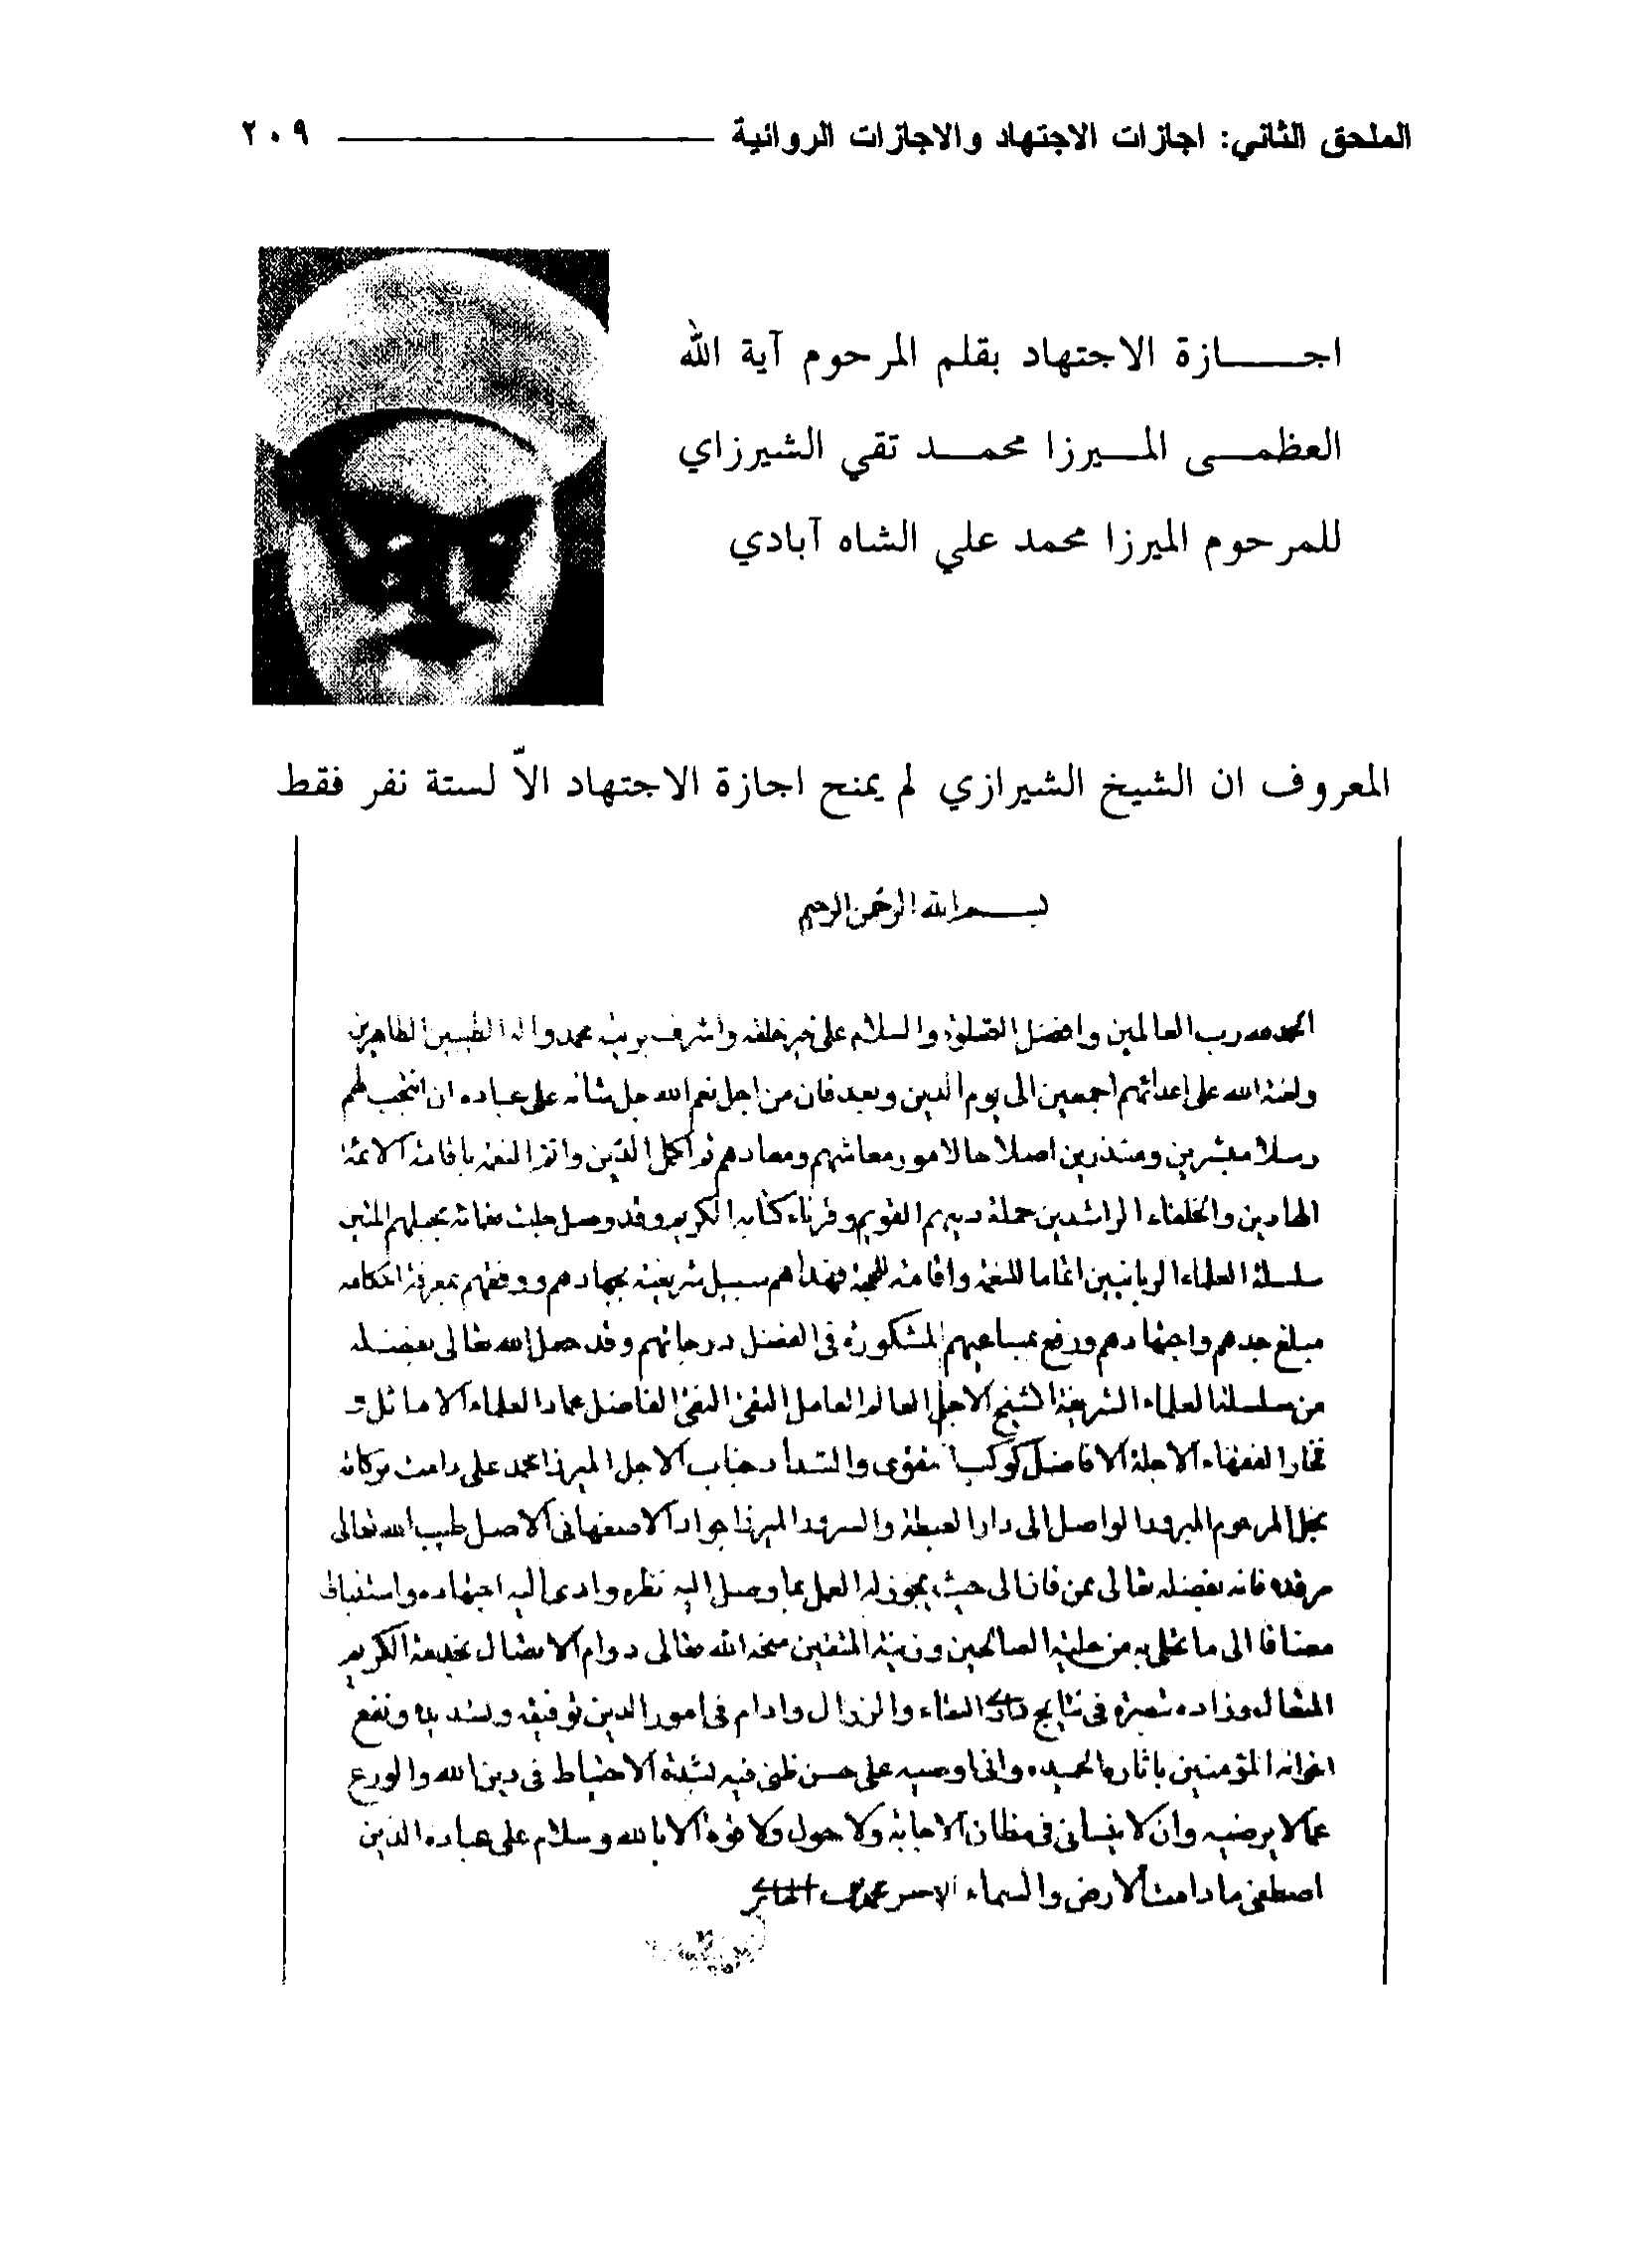 الملحق الثاني: اجازات الاجتهاد والاجازات الروائية ٢٠٩
اجـــازة الاجتهاد بقلم المرحوم آية الله
العظمــى المــيرزا محمــد تقي الشيرزاي
للمرحوم الميرزا محمد علي الشاه آبادي
المعروف ان الشيخ الشيرازي لم يمنح اجازة الاجتهاد الاّ لستة نفر فقط
بسم الله الرحمن الرحيم
الحمد لله رب العالمين وافضل الصلوة والسلام على خير خلقه واشرف بريته محمد واله الطيبين الطاهرين
ولعنة الله على اعدائهم اجمعين الى يوم الدين وبعد فان من اجل نعم الله جل شانه على عباده ان انتجب لهم
رسلا مبشرين ومنذرين اصلاحا لامور معاشهم ومعادهم ثم اكمل الدين واتم النعمة باقامة الائمة
الهادين والخلفاء الراشدين حملة دينهم القويم وقرناء كتابه الكريم وقد وصل جلت نعمائه بحبلهم المتين
سلسلة العلماء الربانيين اتماما للنعمة واقامة للحجة فهداهم سبيل شريعته بجهادهم ووفقهم بمعرفة احكامه
مبلغ جدهم واجتهادهم ورفع بمساعيهم المشكورة في الفضل درجاتهم وقد جعل الله تعالى بفضله
من سلسلة العلماء الشريفة الشيخ الاجل العالم العامل التقي النقي الفاضل عماد العلماء الاماثل و
فخار الفقهاء الاجلة الافاضل كوكب التقوى والسداد جناب الاجل الميرزا محمد علي دامت بركاته
نجل المرحوم المبرور الواصل الى دار الغبطة والسرور الميرزا جواد الاصفهاني الاصل طيب الله تعالى
مرقده فانه بفضله تعالى ممن فاز الى حيث يجوز له العمل بما وصل اليه نظره وادى اليه اجتهاده واستنباطه
مضافا الى ما تحلى به من حلية الصالحين وزينة المتقين منحه الله تعالى دوام الاتصال بخدمة الكريم
المتعال وزاده تبصرة في نتايج البقاء والزوال وادام في امور الدين توفيقه وتسديده ونفع
اخوانه المؤمنين باثاره الحميده وانى اوصيه على حسن ظني فيه بشدة الاحتياط في دين الله والورع
عما لا يرضيه وان لا ينساني في مظان الاجابة ولا حول ولا قوة الا بالله وسلام على عباده الذين
اصطفى ما دامت الارض والسماء الاحقر محمد تقي الحائري